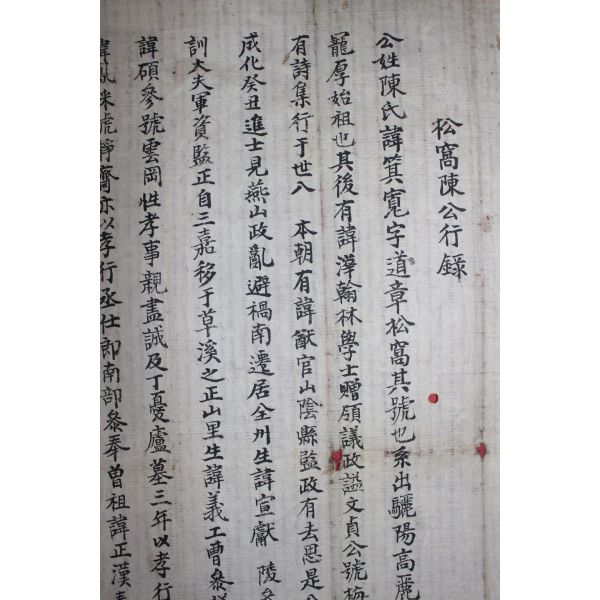 松窩陳公行錄
公姓陳氏諱箕寬字道章松窩其號也系出驪陽高麗
厚始祖也其後有諱澕翰林學士贈領議政謚文貞公號梅
有詩集行于世八 本朝有諱猷官山陰縣監政有去思是
成化癸丑進士見燕山政亂避禍南遷居全州生諱宣獻 陵參
訓大夫軍資監正自三嘉移于草溪之正山里生諱義工曹參議
諱碩參號雲岡性孝事親盡誠及丁憂廬墓三年以孝行
號靜齋亦以孝行丞仕郎南部參奉曾祖諱正漢